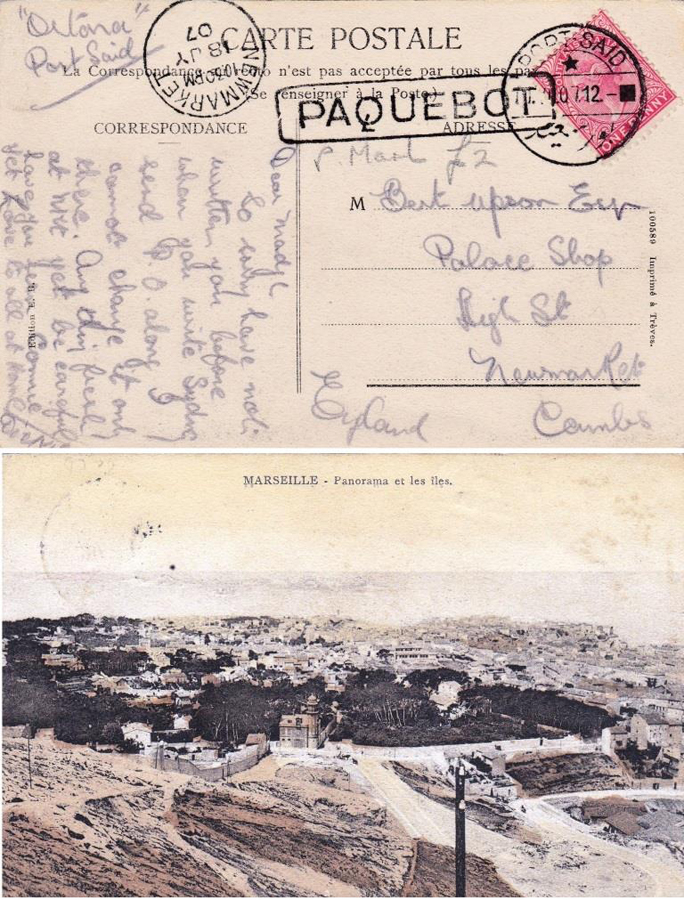 "Ortona"
Port Said
NEWMARKET
10.30 PM
18 JY
07
CARTE POSTALE
La Correspondance au recto n'est pas acceptée par tous les pa
(Se renseigner à la Poste)
PAQUEBOT
PORT SAID
07 12 -
ONE PENNY
CORRESPONDANCE
ADRESSE
P. Mark £2
M Bert Upson Esq
Palace Shop
High St
Newmarket
Cambs
England
100589 Imprimé à Trèves.
Dear Madge
So sorry have not
written you before
when you write Sydney
send P.O. along I
cannot change it only
there. Any thing fresh
at N'kt yet be careful
have you seen Connie
yet Love to all at Home
MARSEILLE - Panorama et les îles.